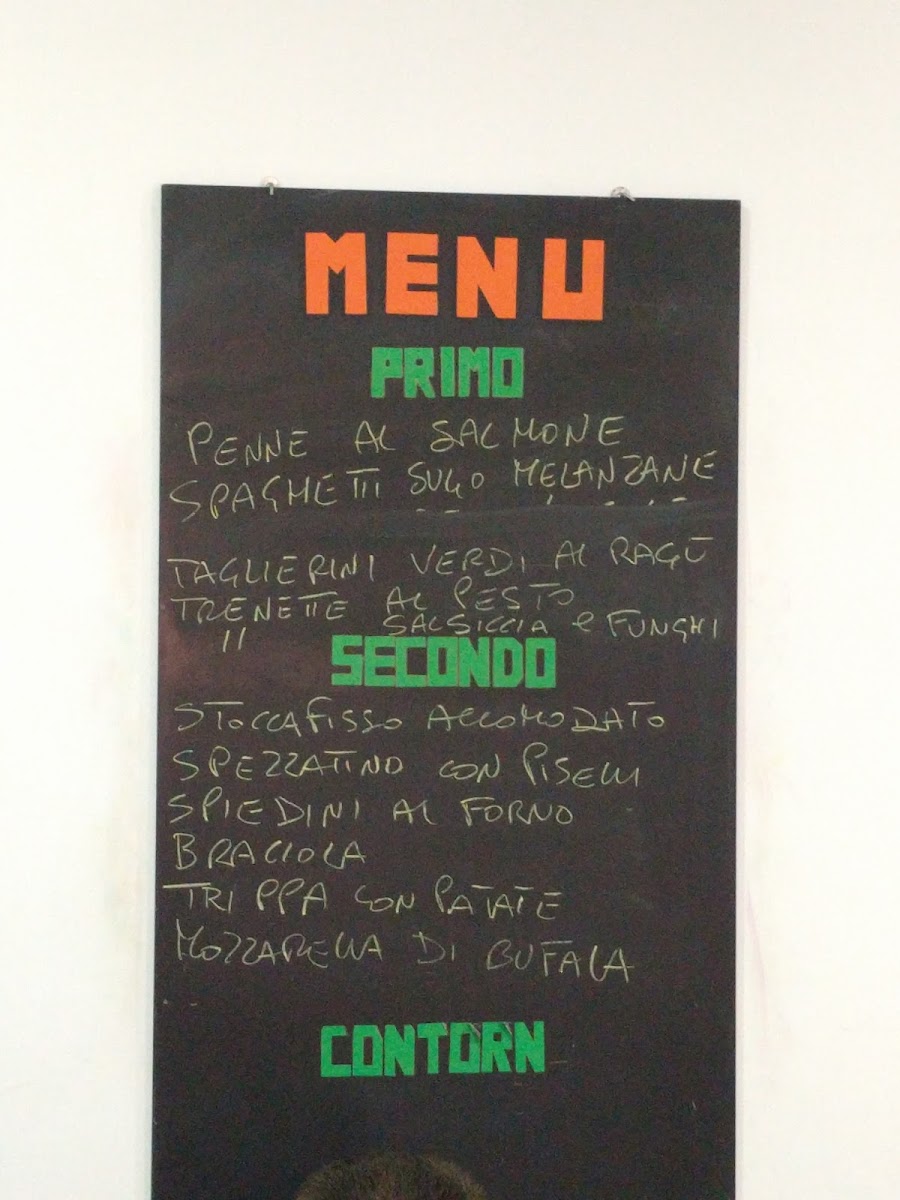 MENU
PRIMO
PENNE AL SALMONE
SPAGHETTI SUGO MELANZANE
TAGLIERINI VERDI AL RAGÙ
TRENETTE AL PESTO
" SALSICCIA e FUNGHI
SECONDO
STOCCAFISSO ACCOMODATO
SPEZZATINO CON PISELLI
SPIEDINI AL FORNO
BRACIOLA
TRIPPA CON PATATE
MOZZARELLA DI BUFALA
CONTORN